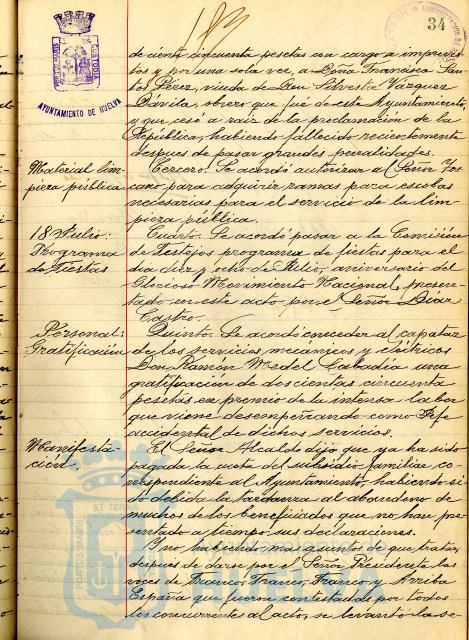 183
34
PORTUS MARIS
CUSTODIA
AYUNTAMIENTO DE HUELVA
de ciento cincuenta pesetas con cargo a imprevis-
tos y por una sola vez, a Doña Francisca San-
tos Pérez, viuda de Don Silvestre Vazquez
Dávila, obrero que fué de este Ayuntamiento,
y que cesó a raiz de la proclamación de la
República, habiendo fallecido recientemente
despues de pasar grandes penalidades.
Material lim-
pieza pública
Tercero. Se acordó autorizar al Señor Tos-
cano para adquirir ramas para escobas
necesarias para el servicio de la lim-
pieza pública.
18 Julio:
Programa
de Fiestas
Cuarto. Se acordó pasar a la Comisión
de Festejos programa de fiestas para el
dia diez y ocho de Julio, aniversario del
Glorioso Movimiento Nacional, presen-
tado en este acto por el Señor Diaz
Castro.
Personal:
Gratificación
Quinto. Se acordó conceder al capataz
de los servicios mecánicos y eléctricos
Don Ramón Medel Cabadia una
gratificación de doscientas cincuenta
pesetas en premio de la intensa labor
que viene desempeñando como Jefe
accidental de dichos servicios.
Manifesta-
ción.
El Señor Alcalde dijo que ya ha sido
pagada la cuota del subsidio familiar co-
rrespondiente al Ayuntamiento, habiendo si-
do debida la tardanza al abandono de
muchos de los beneficiados que no han pre-
sentado a tiempo sus declaraciones.
Y no habiendo mas asuntos de que tratar,
despues de darse por el Señor Presidente las
voces de Franco, Franco, Franco, y Arriba
España que fueron contestadas por todos
los concurrentes al acto, se levantó la se-